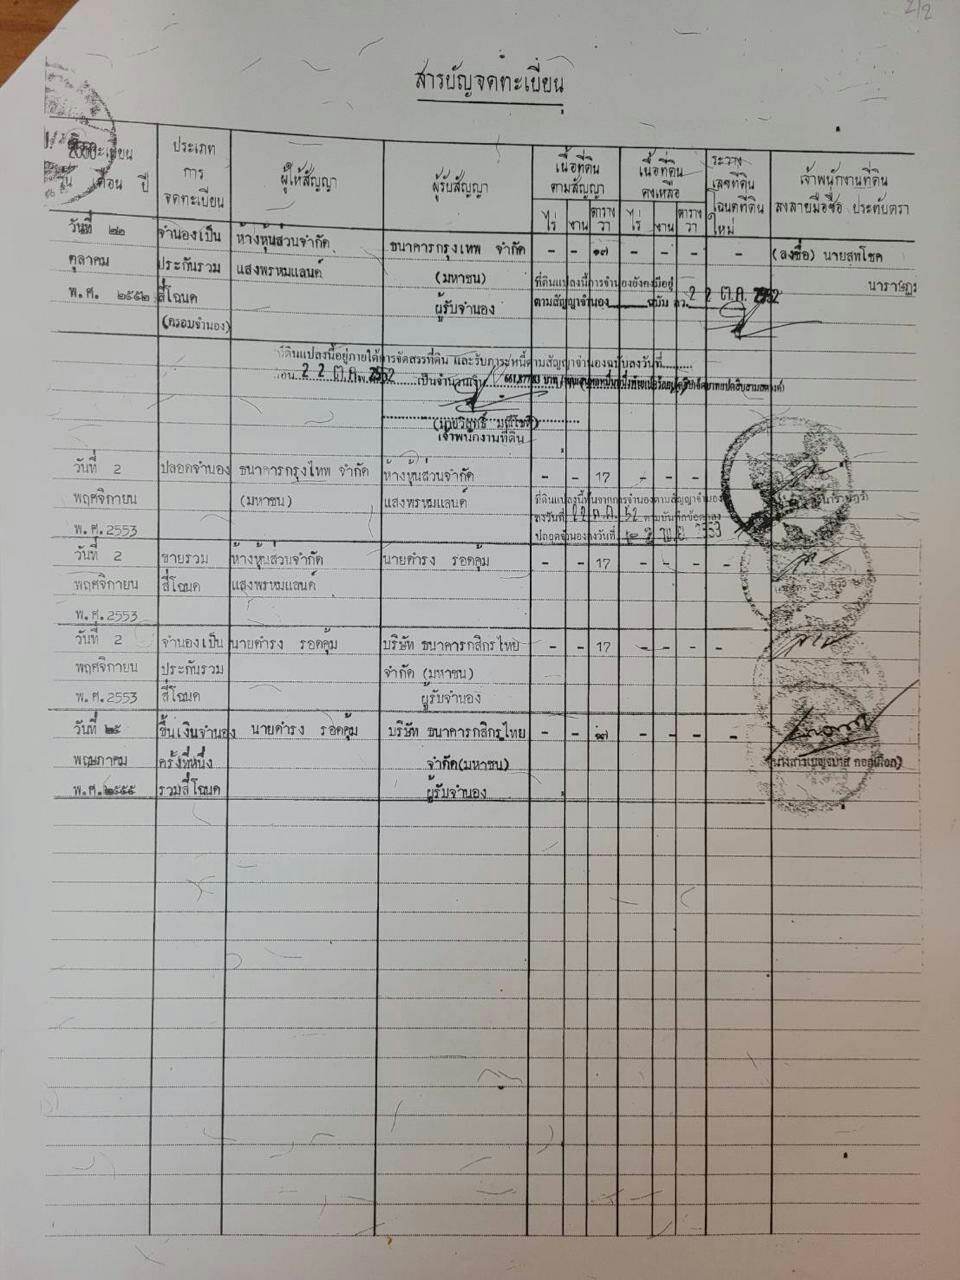 2/2
สารบัญจดทะเบียน
จดทะเบียน
วัน เดือน ปี
ประเภท
การ
จดทะเบียน
ผู้ให้สัญญา
ผู้รับสัญญา
เนื้อที่ดิน
ตามสัญญา
ไร่ งาน ตาราง
วา
เนื้อที่ดิน
คงเหลือ
ไร่ งาน ตาราง
วา
ระวาง
เลขที่ดิน
โฉนดที่ดิน
ใหม่
เจ้าพนักงานที่ดิน
ลงลายมือชื่อ ประทับตรา
วันที่ ๒๒ จำนองเป็น ห้างหุ้นส่วนจำกัด ธนาคารกรุงเทพ จำกัด - - ๑๗ - - - - (ลงชื่อ) นายสุทโชค
ตุลาคม ประกันรวม แสงพรหมแลนด์ (มหาชน) ที่ดินแปลงนี้การจำนองยังคงมีอยู่ นาราษฎร
พ.ศ. ๒๕๕๒ สี่โฉนด ผู้รับจำนอง ตามสัญญาจำนอง ฉบับ ลว. 2 2 ต.ค. 2552
(ครอบจำนอง)
ที่ดินแปลงนี้อยู่ภายใต้การจัดสรรที่ดิน และรับภาระหนี้ตามสัญญาจำนองฉบับลงวันที่
2 2 ต.ค. 2552 เป็นจำนวนเงิน
เจ้าพนักงานที่ดิน
วันที่ 2 ปลอดจำนอง ธนาคารกรุงไทพ จำกัด ห้างหุ้นส่วนจำกัด - - 17 - - - -
พฤศจิกายน (มหาชน) แสงพรหมแลนด์ ที่ดินแปลงนี้พ้นจากการจำนองตามสัญญาจำนอง
พ.ศ.2553 ลงวันที่ 22 ต.ค. 52 ตามบันทึกข้อตกลง
ปลอดจำนองลงวันที่ - 2 พ.ย. 2553
วันที่ 2 ขายรวม ห้างหุ้นส่วนจำกัด นายดำรง รอดคุ้ม - - 17 - - - -
พฤศจิกายน สี่โฉนด แสงพรหมแลนด์
พ.ศ.2553
วันที่ 2 จำนองเป็น นายดำรง รอดคุ้ม บริษัท ธนาคารกสิกรไทย - - 17 - - - -
พฤศจิกายน ประกันรวม จำกัด (มหาชน)
พ.ศ.2553 สี่โฉนด ผู้รับจำนอง
วันที่ ๒๕ ขึ้นเงินจำนอง นายดำรง รอดคุ้ม บริษัท ธนาคารกสิกรไทย - - ๑๗ - - - -
พฤษภาคม ครั้งที่หนึ่ง จำกัด(มหาชน)
พ.ศ.๒๕๕๕ รวมสี่โฉนด ผู้รับจำนอง